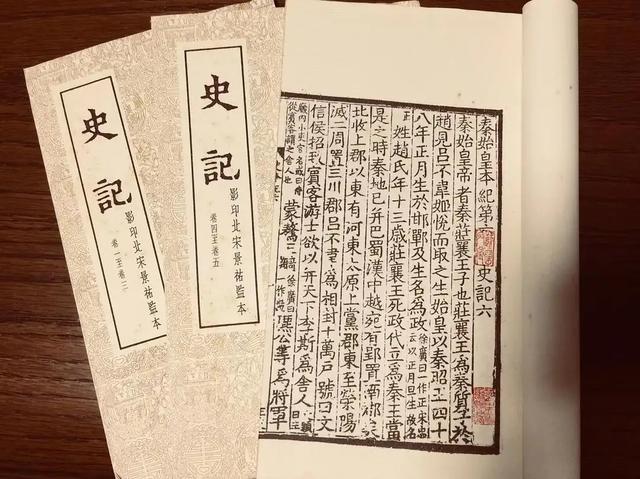 史記
影印北宋景祐監本
卷一至卷三
史記
影印北宋景祐監本
卷四至卷五
秦始皇本紀第六 史記六
秦始皇帝者秦莊襄王子也莊襄王為秦質子於
趙見呂不韋姬悅而取之生始皇以秦昭王四十
八年正月生於邯鄲及生名為政徐廣曰一作正宋忠云以正月旦生故名正
姓趙氏年十三歲莊襄王死政代立為秦王當
是之時秦地已并巴蜀漢中越宛有郢置南郡矣
北收上郡以東有河東太原上黨郡東至滎陽
滅二周置三川郡呂不韋為相封十萬戶號曰文
信侯招致賓客游士欲以并天下李斯為舍人
廄內小吏官名或曰侍從賓客謂之舍人也蒙驁王齮徐廣曰一作麃公等為將軍